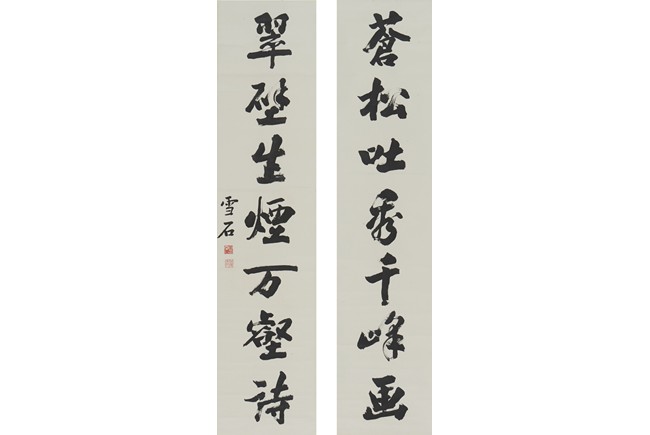 蒼松吐秀千峰画
翠壁生煙万壑詩
雪石